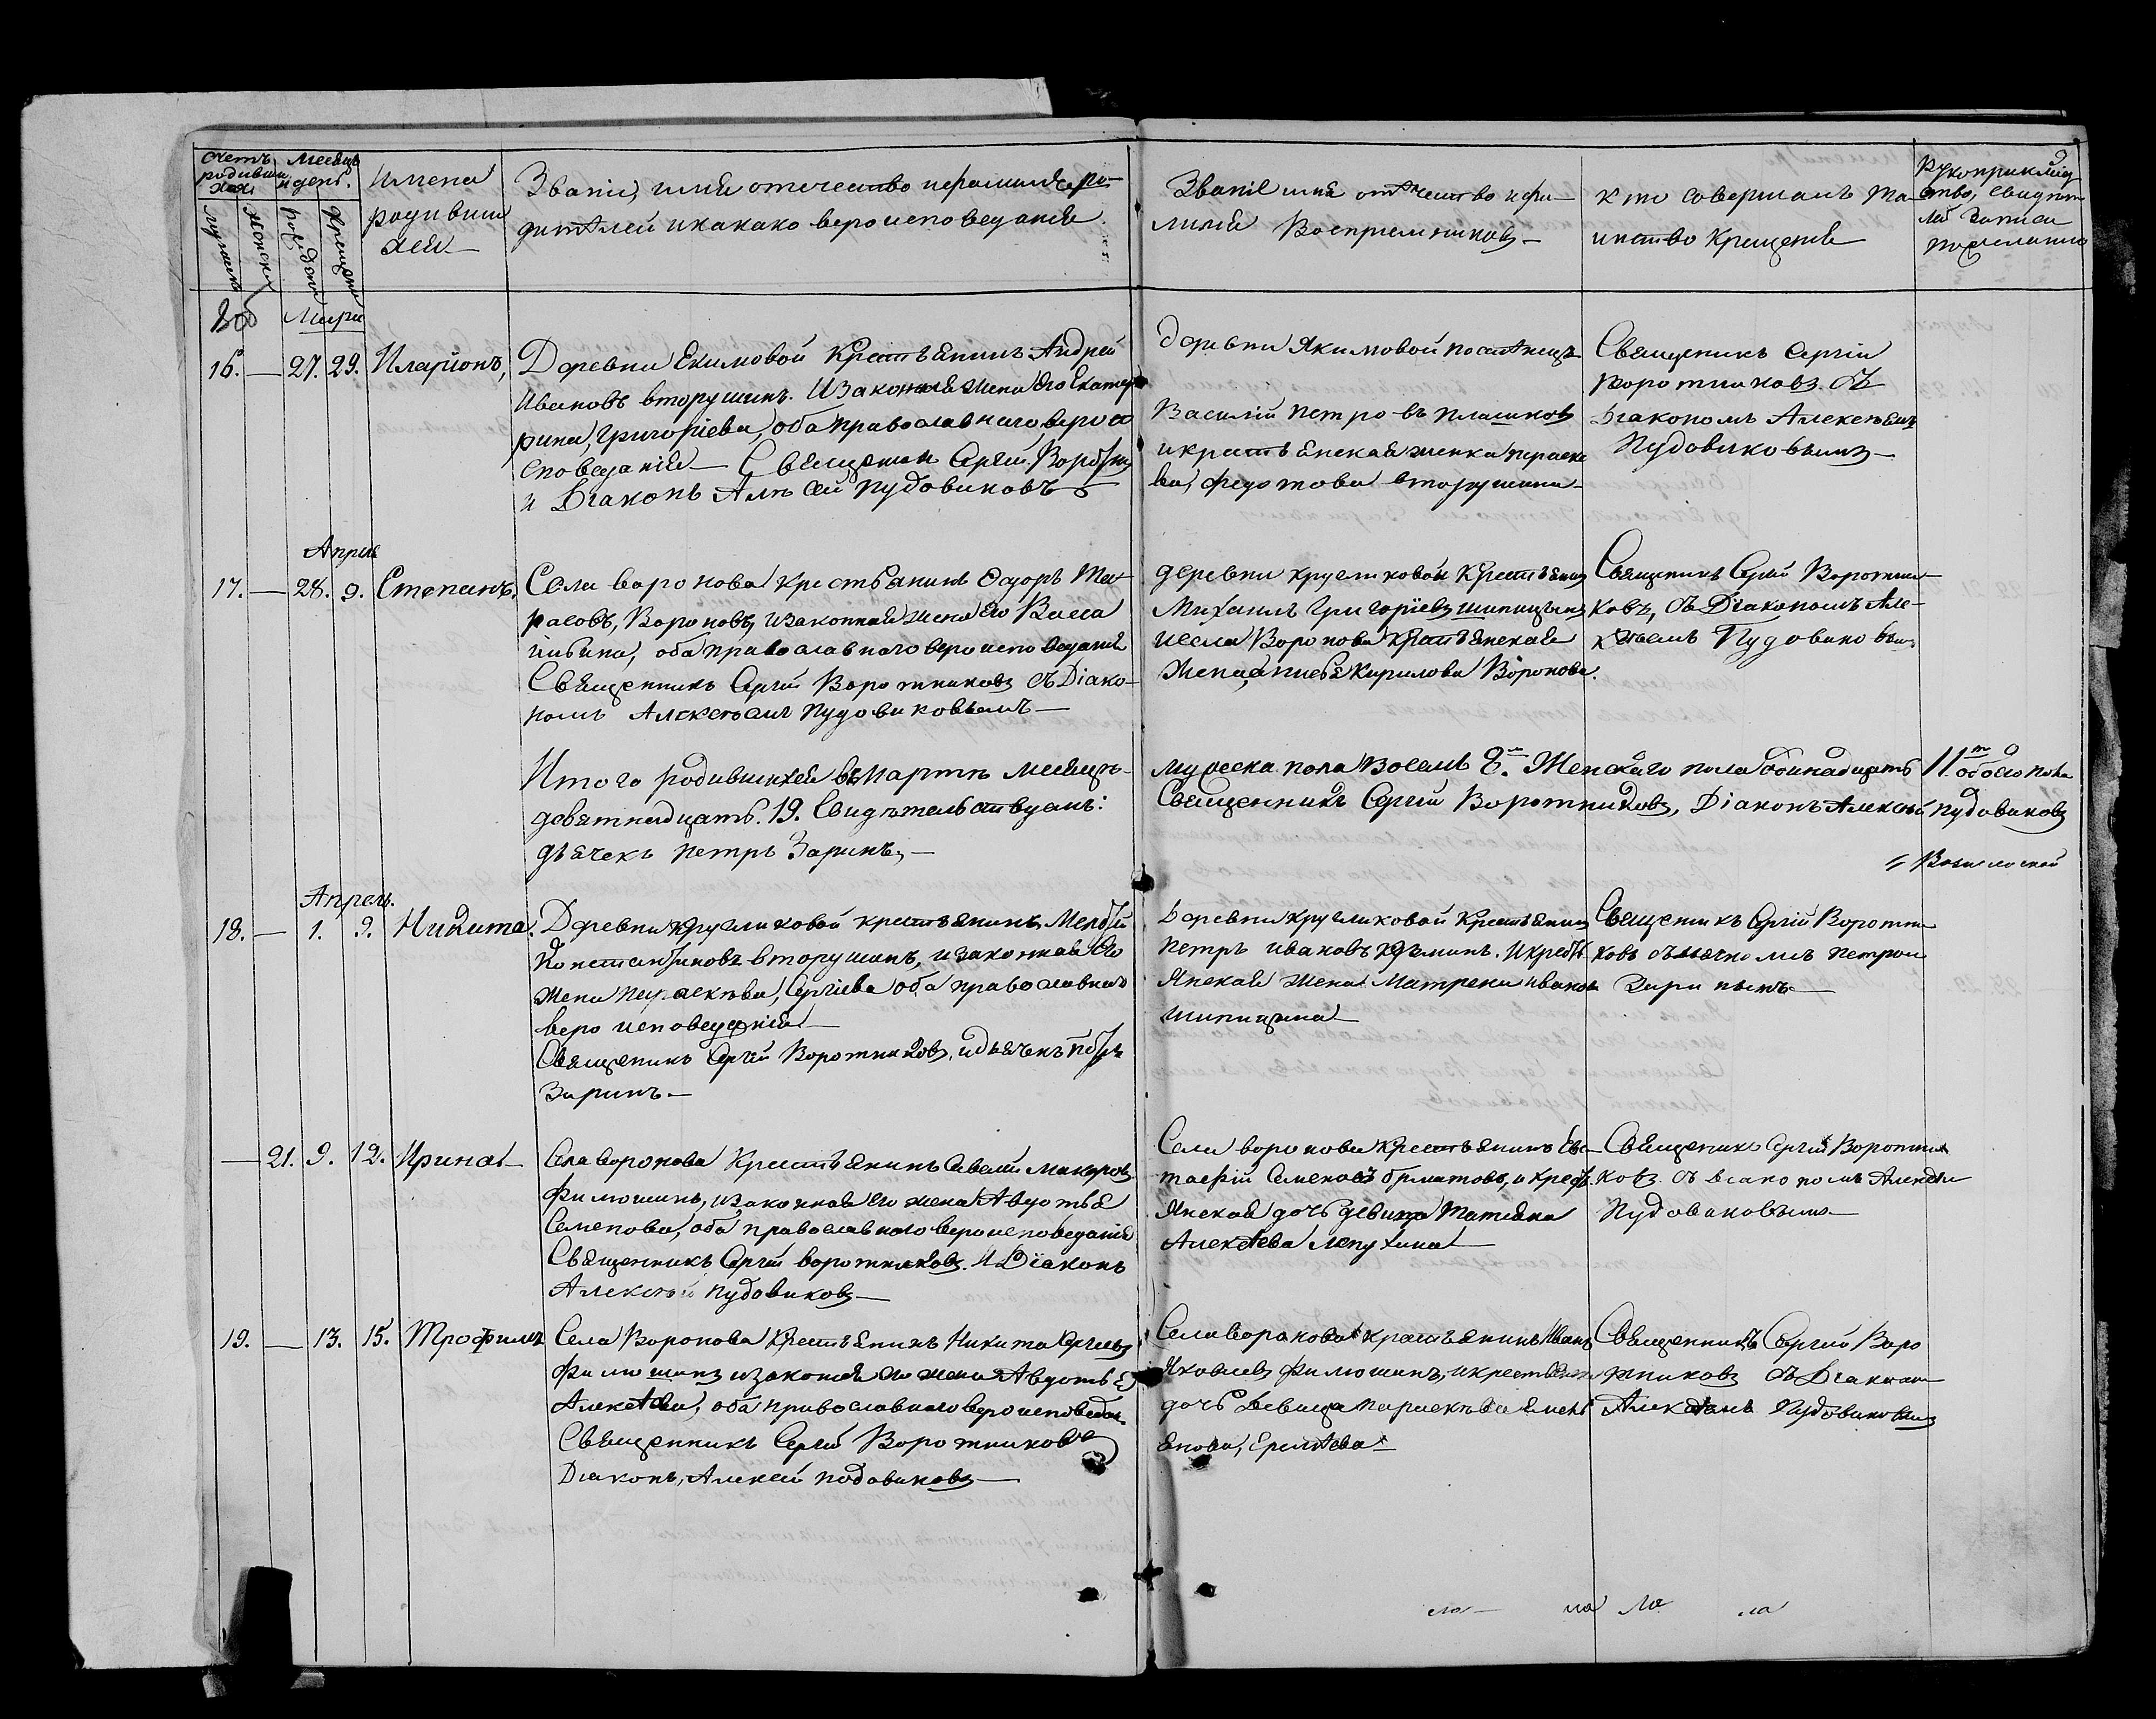 Счетъ родивши хся
Месяцъ и день.
мужеска
женска
рождения
крещения
Имена
родивши
хся
Званіе, имя отечество и фамилія ро-
дителей и какако вероисповеданія
Званіе имя отечество и фа-
милия Восприемников
кто совершалъ та-
инство Крещения
Рукоприклад
ство, свидете
лей записи
по желанию
Мари
16. — 27. 29. Иларіонъ,
Деревни Екимовой Крестьянинъ Андрей
Ивановъ вторушинъ. И законная жена его Екате
рина, Григоріева, оба православнаго вероі
споведанія — Священник Сергій Ворот
и Діаконъ Алексей Пудовиковъ
деревни Якимовой
Василій Петровъ Плашиков
и крестьянская женка параске
ва, федотова вторушина
Священикъ Сергіи
Воротниковъ. Съ
Діакономъ Алексеемъ
Пудовиковымъ —
Април
17. — 28. 9. Степанъ,
Села воронова крестьянинъ Федоръ Та-
расовъ, Вороновъ, и законная жена его Васса
оба православнаго вероисповеданія
Священникъ Сергій Воротниковъ съ Діако-
номъ Алексеемъ Пудовиковымъ —
деревни кругликовой Крестьянин
Михаилъ Григоріевъ шипицынъ
и села Воронова крестьянская
Жена, Кирилова Воронова.
Священикъ Сергій Воротни-
ковъ, съ Діакономъ Але-
ксеемъ Пудовиковым
Итого родившихся въ Марте месяце
девятнадцать. 19. Свидетельствуемъ:
дьячекъ Петръ Заринъ, —
мужеска пола Восемь 8. Женскаго пола одинадцать 11. обоего пола
Священникъ Сергій Воротниковъ, Діаконъ Алексей Пудовиковъ
Апрель.
18. — 1. 9. Никита.
Деревни кругликовой крестьянинъ
Константиновъ вторушинъ, и законная его
жена параскева, Сергіева оба православнаго
вероисповеданія —
Священикъ Сергій Воротниковъ, и дьячекъ Петръ
Заринъ —
Деревни кругликовой Крестьянин
Петръ ивановъ И кресть
янская жена Матрена иванова
шипицына —
Священикъ Сергій Воротни
ковъ съ дьячкомъ Петром
Зариным —
— 21. 9. 12. Ирина —
Села воронова Крестьянинъ Савелій Макаровъ
Филюшинъ, и законная его жена Авдотья
Семенова, оба православнаго вероисповеданія
Священникъ Сергій воротниковъ. И Діаконъ
Алексей Пудовиковъ —
Села воронова Крестьянинъ Евс-
тафій Семеновъ и кресть
янская дочь девица Татьяна
Алексеева Лепухина —
Священикъ Сергій Воротни
ковъ съ Діакономъ Алексеем
Пудовиковымъ —
19. — 13. 15. Трофимъ
Села Воронова Крестьянинъ Никита Сергеевъ
Филюшинъ и законная его жена Авдотья
Алексеева, оба православнаго вероисповедан
Священникъ Сергій Воротниковъ
Діаконъ, Алексей Подовиковъ —
Села воронова крестьянинъ Иванъ
Яковлевъ Филюшинъ, и крестьянск
дочь Девица параскева Емель
янова, Еремеева —
Священникъ Сергій Воро
тниковъ съ Діаконом
Алексеемъ Пудовиковым
ло — ла ла ла